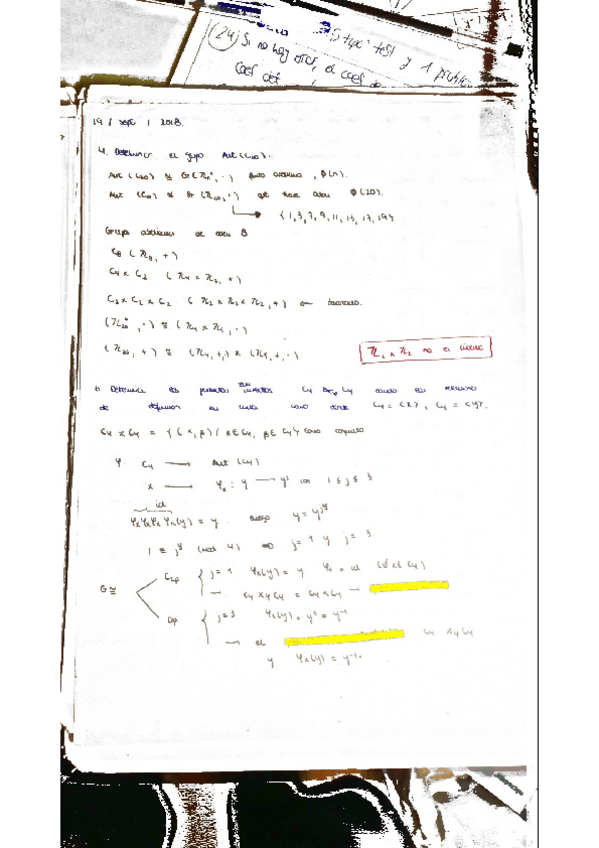 24) Si no hay error, el coef de
test y 1 problema
coef def
19 / sept / 2018.
4. Determinar el grupo Aut(C₂₀).
Aut (C₂₀) ≅ (ℤₙ*, ·) , φ(n).
Aut (C₂₀) ≅ (ℤ₂₀, ·) que tiene orden φ(20).
{1, 3, 7, 9, 11, 13, 17, 19}
Grupos abelianos de orden 8
C₈ (ℤ₈, +)
C₄ × C₂ (ℤ₄ × ℤ₂, +)
C₂ × C₂ × C₂ (ℤ₂ × ℤ₂ × ℤ₂, +)
(ℤ₂₀*, ·) ≅ (ℤ₄ × ℤ₅, ·)
(ℤ₂₀, +) ≅ (ℤ₄, +, ·) × (ℤ₅, +, ·)
no es cíclico
Determina los productos semidirectos C₄ C₄
de donde C₄ = <x>, C₄ = <y>.
C₄ × C₄ = {(α, β) / α ∈ C₄, β ∈ C₄} como conjunto
φ: C₄ → Aut (C₄)
x → φₓ : y → yʲ con 1 ≤ j ≤ 3
id
φₓφₓφₓφₓ(y) = y luego y = y^j⁴
1 ≡ j⁴ (mod 4) ⇒ j = 1 y j = 3
G ≅
j = 1 φₓ(y) = y φₓ = id (∀x ∈ C₄)
→ C₄ ×φ C₄ = C₄ × C₄ →
j = 3 φₓ(y) = y³ = y⁻¹
→ el C₄ ×φ C₄
y φₓ(y) = y⁻¹.